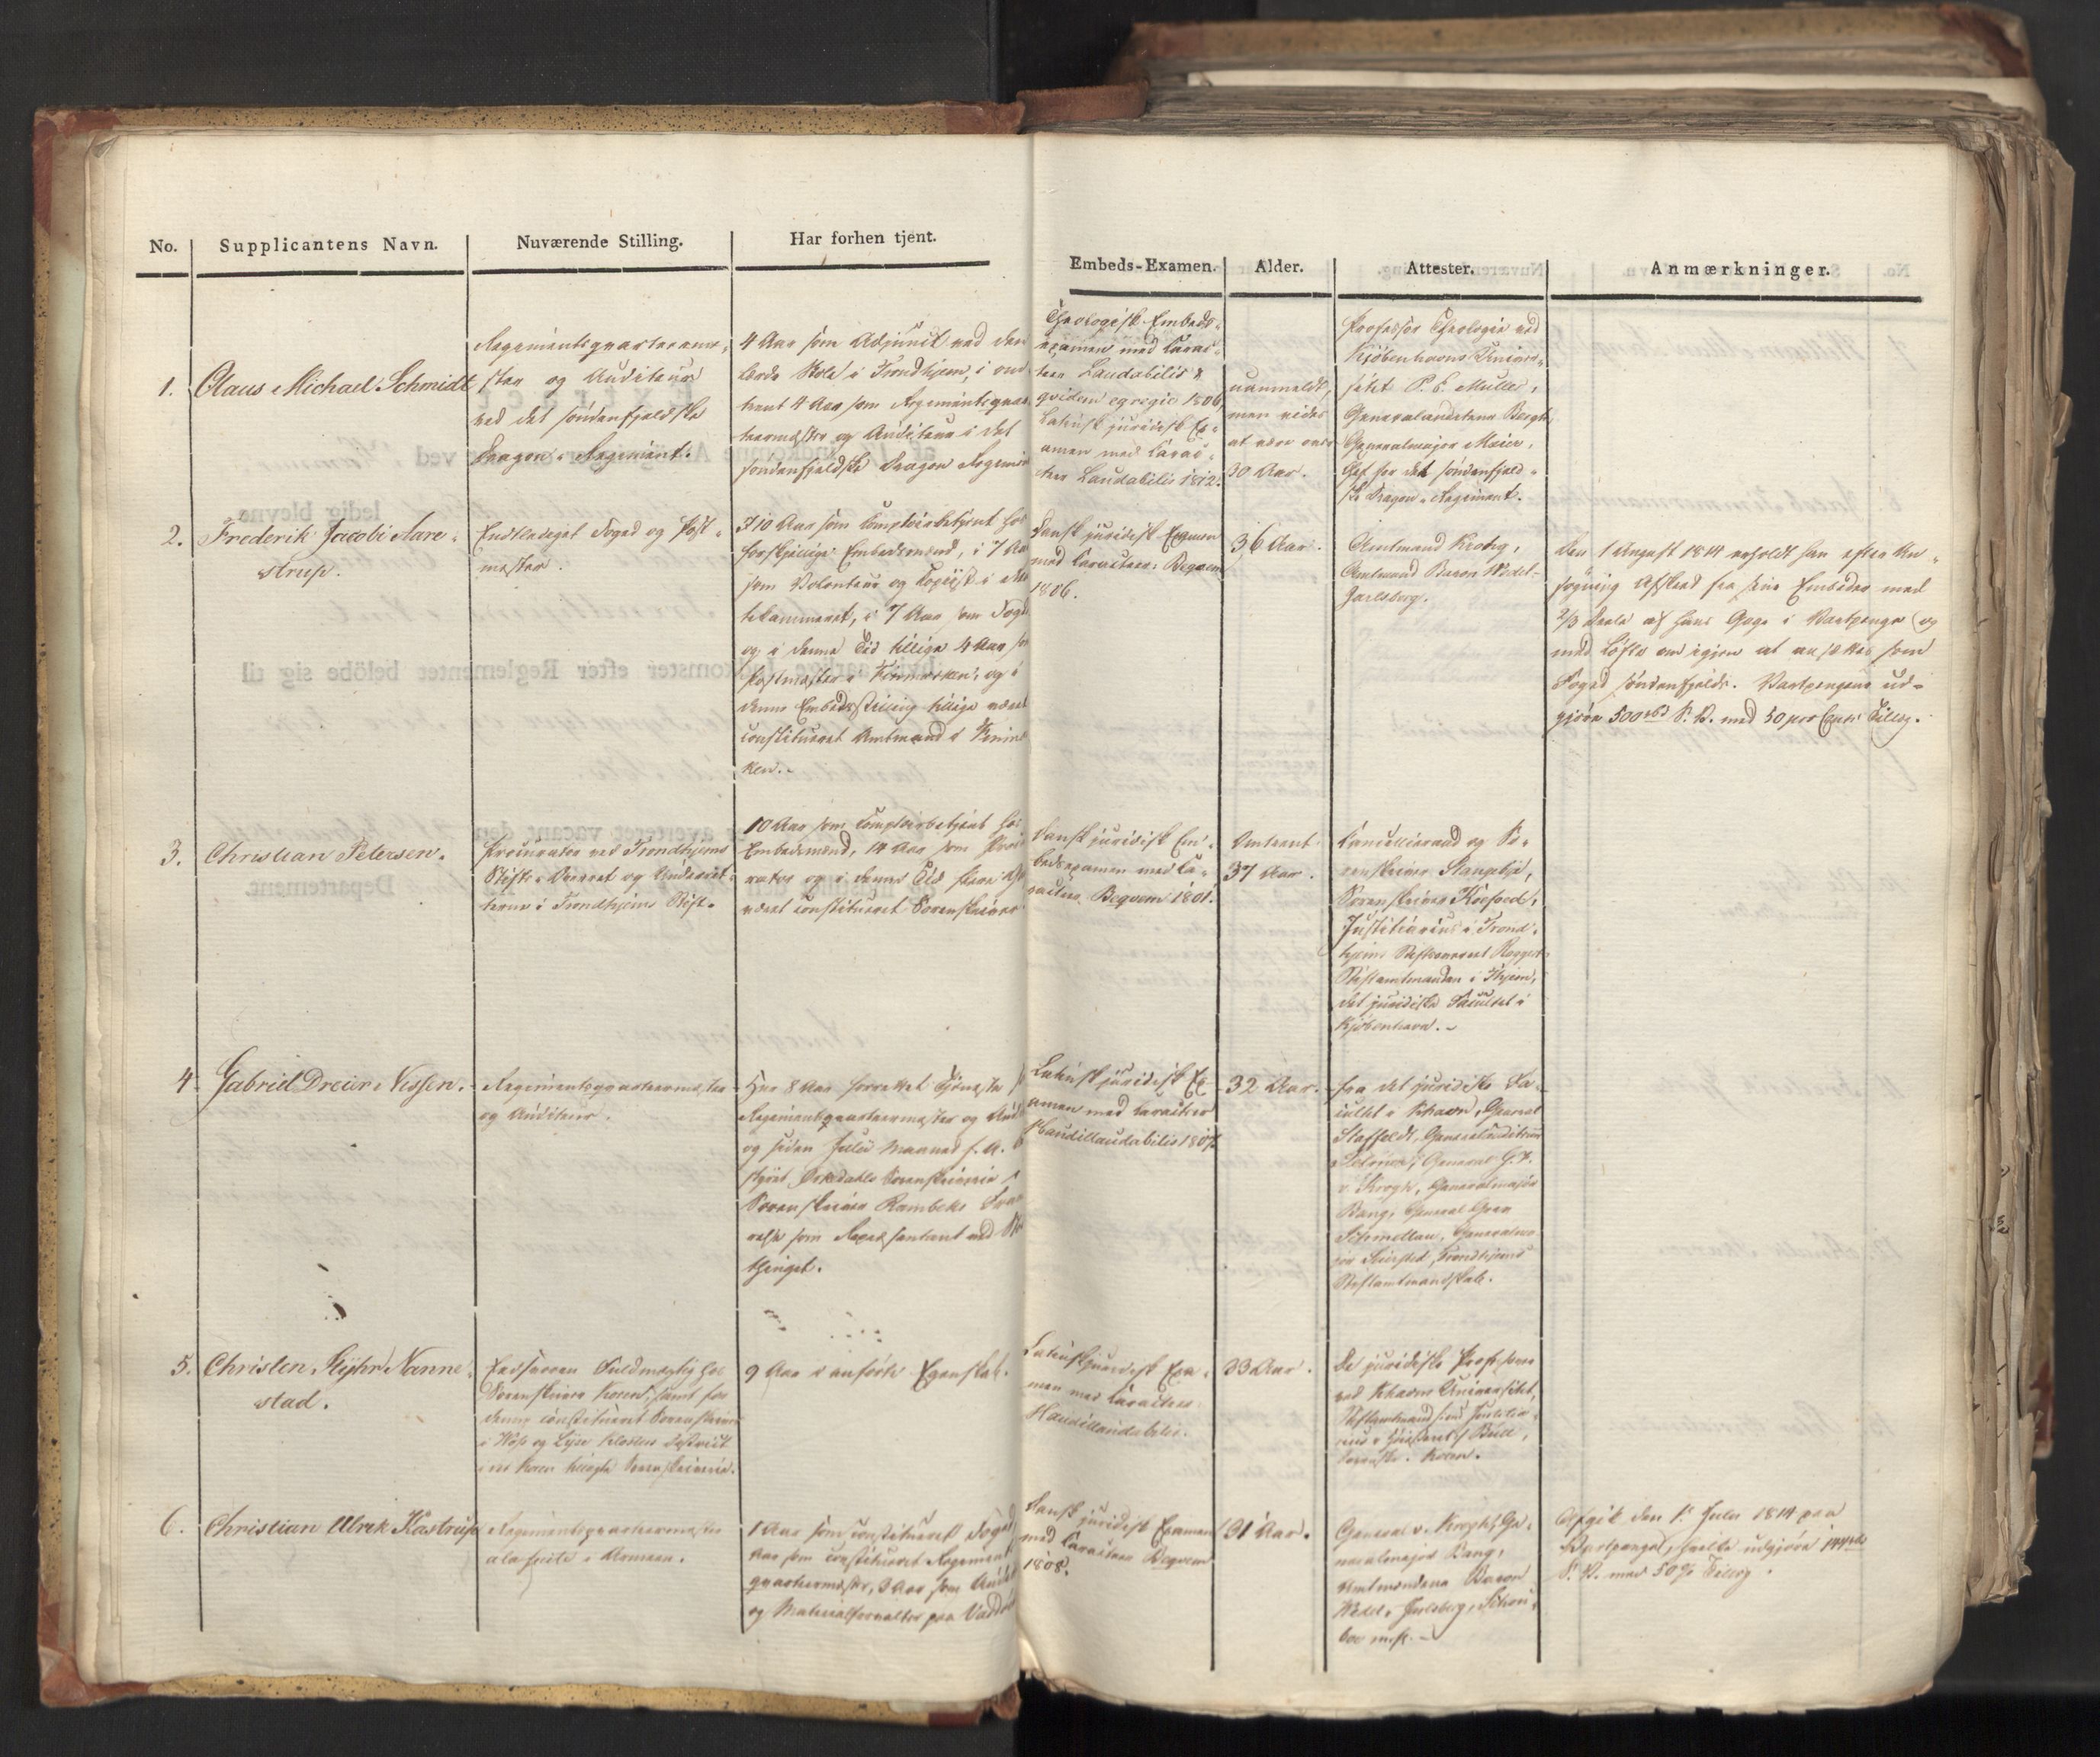 No.
Supplicantens Navn.
Nuværende Stilling.
Har forhen tjent.
Embeds-Examen.
Alder.
Attester.
Anmærkninger.
1.
Claus Michael Schmidt
Regimentsqvarteerme-
ster og Auditeur
ved det söndenfjeldske
Dragon-Regiment.
4 Aar som Adjunct ved den
lærde Skole i Trondhjem, i om-
trent 4 Aar som Regimentsqvar
teermester og Auditeur i det
söndenfjeldske Dragon Regim
Theologisk Embeds-
examen med Carac-
teer Laudabilis &
qvidem egregie 1806
Latinsk juridisk Ex-
amen med Carac-
teer Laudabilis 1812.
uanmeldt,
men vides
at være over
30 Aar.
Professor Theologiæ ved
Kjöbenhavns Univer-
sitet P. E. Muller,
Generalauditeur Bergh,
Generalmajor Meier,
Chef for det söndenfjeld-
ske Dragon-Regiment.
2.
Frederik Jacobi Aare-
strup.
Entlediget Foged og Post-
mester.
I 10 Aar som Comptoirbetjent hos
forskjellige Embedsmænd, i 7 Aar
som Volonteur og Copiist i
tekammeret, i 7 Aar som Foged
og i denne Tid tillige 4 Aar som
Postmester i Finmarken, og i
denne Embedsstilling tillige været
constitueret Amtmand i Finmar
ken.-
Dansk juridisk Examen
med Caracteer: Beqvem
1806.
36 Aar.
Amtmand Krohg,
Amtmand Baron Wedel-
Jarlsberg.
Den 1 August 1814 erholdt han efter An-
sögning Afskeed fra sine Embeder med
2/3 Deele af hans Gage i Vartpenge og
med Löfte om igjen at ansættes som
Foged söndenfjelds. Vartpengene ud-
gjöre 500 rbd S. V. med 50 pro Cent Tillæg.
3.
Christian Petersen.
Procurator ved Trondhjems
Stifts-Overret og Underret-
terne i Trondhjems Stift.
10 Aar som Comptoirbetjent hos
Embedsmænd, 14 Aar som Procu
rator og i denne Tid flere Gange
været constitueret Sorenskriver.
Dansk juridisk Em-
bedsexamen med Ca-
racteer Beqvem 1801.
Omtrent
37 Aar.
Cancelliraad og So-
renskriver Stangebye,
Sorenskriver Koefoed,
Justitiarius i Trond-
hjems Stiftsoverret
Stiftamtmanden i Thjem,
det juridiske Facultet i
Kjöbenhavn.-
4.
Gabriel Dreier Nissen.
Regimentsqvarteermester
og Auditeur.
Har 8 Aar forrettet Tjeneste som
Regimentsqvarteermester og Aud
og siden Julii Maaned f. A. be
styret Orkedals Sorenskriverie i
Sorenskriver Rambechs Fra
værelse som Repræsentant ved Stor
thinget.
Latinsk juridisk Ex-
amen med Caracteer
Haudillaudabilis 1807.
32 Aar.
Fra det juridiske Fa-
cultet i Khavn, General
Staffeldt, Generalauditeur
General G. F.
v. Krogh, Generalmajor
Bang, General Grev
Schmettau, Generalma-
jor Trondhjems
Stiftamtmandskab.
5.
Christen Nanne-
stad.
Edsvoren Fuldmægtig hos
Sorenskriver Koren, samt for
denne constitueret Sorenskriver
i Hofs og Lyse Klosters District
Sorenskriverie.
9 Aar i anförte Egenskab.
Latinsk juridisk Exa-
men med Caracteer
Haudillaudabilis.
33 Aar.
De juridiske Professorer
ved Khavns Universitet,
Stiftamtmand Justitia-
rius Bull,
Sorenskr. Koren.
6.
Christian Ulrik Kastrup
Regimentsqvarteermester
a la suite i Armeen.
1 Aar som constitueret Foged,
Aar som constitueret Regiments
qvarteermester, 3 Aar som Audit
og Materialforvalter paa
Dansk juridisk Examen
med Caracteer Beqvem
1808.
31 Aar.
General v. Krogh, Ge-
neralmajor Bang,
Amtmændene Baron
Wedel-Jarlsberg,
Afgik den 1 Julii 1814 paa
Vartpenge, hvilke udgjöre 144 rbd
S. V. med 50 % Tillæg.